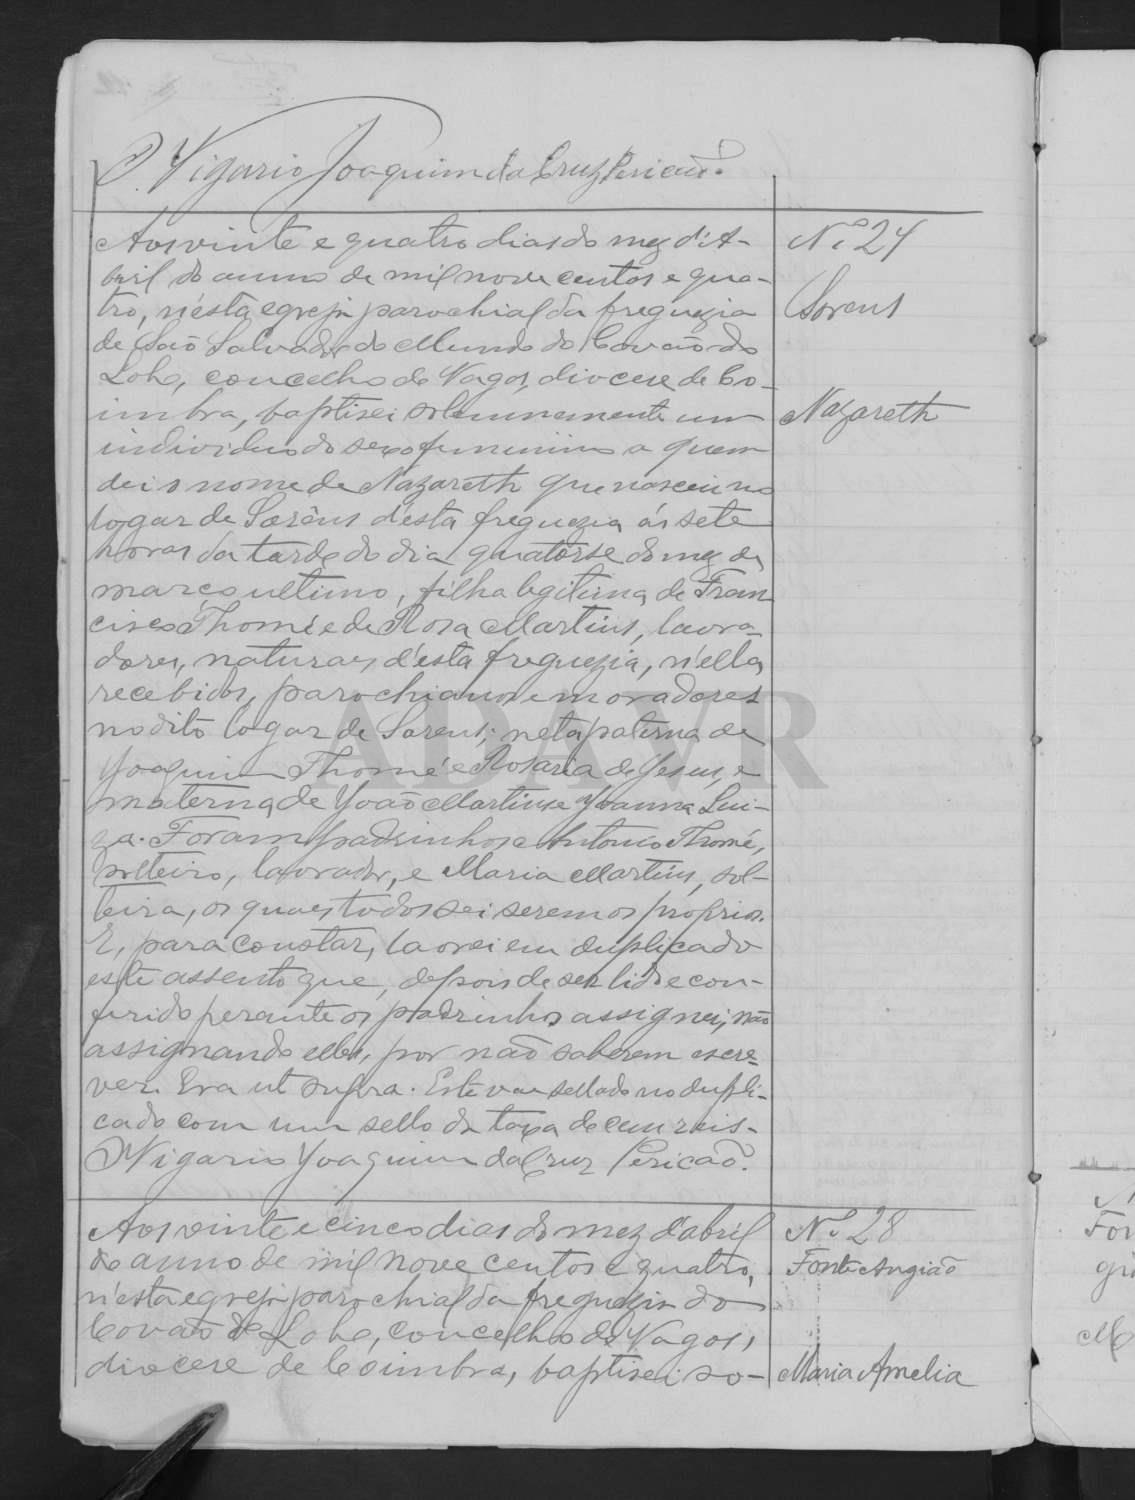 O Vigario Joaquim da Cruz Pericão.
Aos vinte e quatro dias do mez d'A-
bril do anno de mil nove centos e qua-
tro, n'esta egreja parochial da freguezia
de São Salvador do Mundo do Covão do
Lobo, concelho de Vagos, diocese de Co-
imbra, baptisei solemnemente um
individuo do sexo feminino a quem
dei o nome de Nazareth que nasceu no
logar de Sorêns d'esta freguezia ás sete
horas da tarde do dia quatorse do mez de
março ultimo, filha legitima de Fran
cisco Thomé e de Rosa Martins, lavra-
dores, naturaes d'esta freguezia, n'ella
recebidos, parochianos e moradores
no dito logar de Sorens; neta paterna de
Joaquim Thomé e Rosaria de Jesus, e
materna de João Martins e Joanna Lui-
za. Foram padrinhos Antonio Thomé,
solteiro, lavrador, e Maria Martins, sol-
teira, os quaes todos sei serem os proprios.
E, para constar, lavrei em duplicado
este assento que, depois de ser lido e con-
ferido perante os padrinhos assignei, não
assignando elles, por não saberem escre-
ver. Era ut supra. Este vae sellado no dupli-
cado com um sello da taxa de cem reis-
O Vigario Joaquim da Cruz Pericão.
Nº 27
Sorens
Nazareth
Aos vinte e cinco dias do mez d'abril
do anno de mil nove centos e quatro,
n'esta egreja parochial da freguezia do
Covão do Lobo, concelho de Vagos,
diocese de Coimbra, baptisei so-
Nº 28
Fonte Angião
Maria Amelia
ADAVR